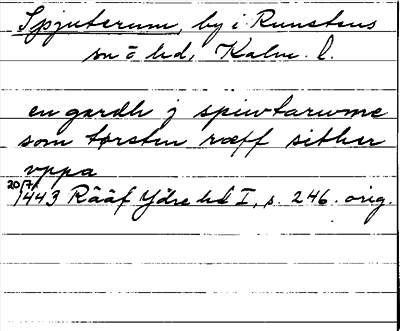 Spjuterum, by i Runstens
sn ö hd, Kalm. l.
en gardh j spiwtarwme
som torsten ræff sither
vppa
20/7 1443 Rääf Ydre hd I, s. 246. orig.